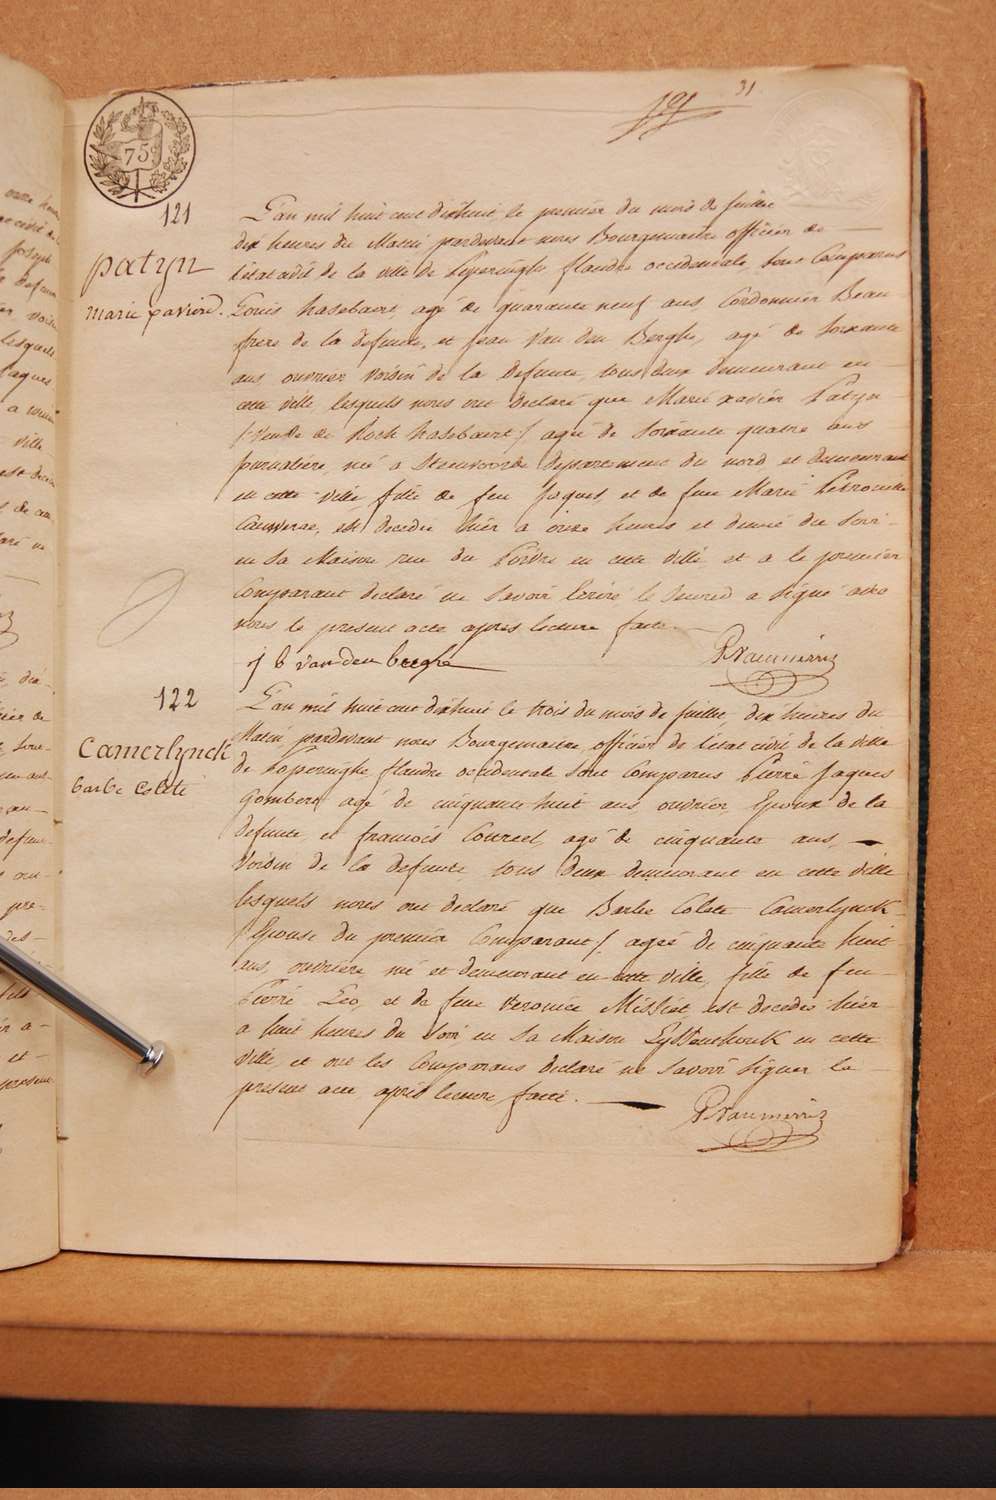 31
75
121
patyn
marie xavière.
L'an mil huit cent dixhuit le premier du mois de juillet
dix heures du Matin pardevant nous Bourgemaitre officier de
l'état civil de la ville de Poperinghe flandre occidentale, sont Comparus
Louis hasebaert, agé de quarante neuf ans, Cordonnier Beau-
frere de la defunte, et jean Van den Berghe, agé de soixante
ans ouvrier Voisin de la defunte, tous deux demeurant en
cette ville, lesquels nous ont declaré que Marie xavier Patyn
/ veuve de Roch hasebaert / agée de soixante quatre ans
journalière, née a Steenvoorde departement du nord et demeurant
en cette ville, fille de feu Jaques, et de feue Marie Petronille
Cauwerse, est decedée hier a onze heures et demie du soir
en sa Maison rue du en cette ville et a le premier
Comparant declaré ne savoir ecrire le second a signé avec
nous le present acte apres lecture faite.
j b van den berghe
122
Camerlynck
barbe Colete
L'an mil huit cent dixhuit le trois du mois de juillet, dix heures du
Matin pardevant nous Bourgemaitre, officier de l'état civil de la ville
de Poperinghe flandre occidentale sont Comparus Pierre Jaques
Gombert agé de cinquante huit ans, ouvrier, Epoux de la
defunte, et francois Coureel, agé de cinquante ans,
Voisin de la defunte tous deux demeurant en cette ville
lesquels nous ont declaré que Barbe Colete Camerlynck
/ Epouse du premier Comparant / agée de cinquante huit
ans, ouvrière née et demeurant en cette ville, fille de feu
Pierre Leo, et de feue Veronice Missiet, est decedée hier
a huit heures du soir en sa Maison en cette
ville, et ont les Comparans declaré ne savoir signer le
present acte après lecture faite.